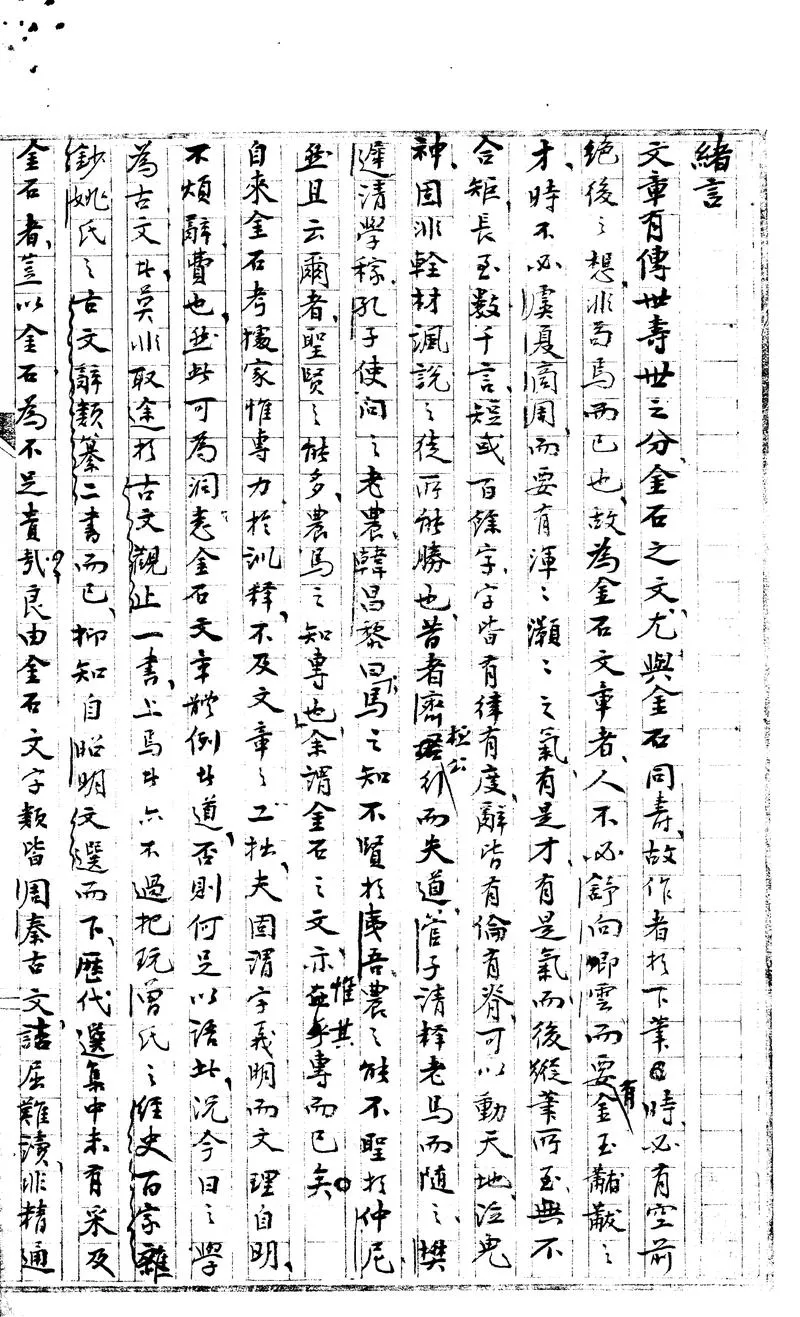 緒言
文章有傳世壽世之分、金石之文、尤與金石同壽、故作者於下筆時、必有空前
絕後之想、非苟焉而已也、故為金石文章者、人不必舒向卿雲而要有金玉黼黻之
才、時不必虞夏商周、而要有渾〻灝〻之氣、有是才、有是氣、而後縱筆所至、無不
合矩、長至數千言、短或百餘字、字皆有律有度、辭皆有倫有脊、可以動天地、泣鬼
神、固非輇材諷說之徒所能勝也、昔者齊桓公行而失道、管子請釋老馬而隨之、樊
遲請學稼、孔子使問之老農、韓昌黎曰、馬之知不賢於夷吾、農之能不聖於仲尼、
然且云爾者、聖賢之能多、農馬之知專也、余謂金石之文、亦惟其專而已矣。
自來金石考據家惟專力於訓釋、不及文章之工拙、夫固謂字義明而文理自明、
不煩辭費也、然此可為洞悉金石文章體例者道、否則何足以語此、況今日之學
為古文者、莫非取途於古文觀止一書、上焉者亦不過把玩曾氏之經史百家雜
鈔、姚氏之古文辭類纂二書而已、抑知自昭明文選而下、歷代選集中未有采及
金石者、豈以金石為不足貴哉、良由金石文字類皆周秦古文、詰屈難讀、非精通